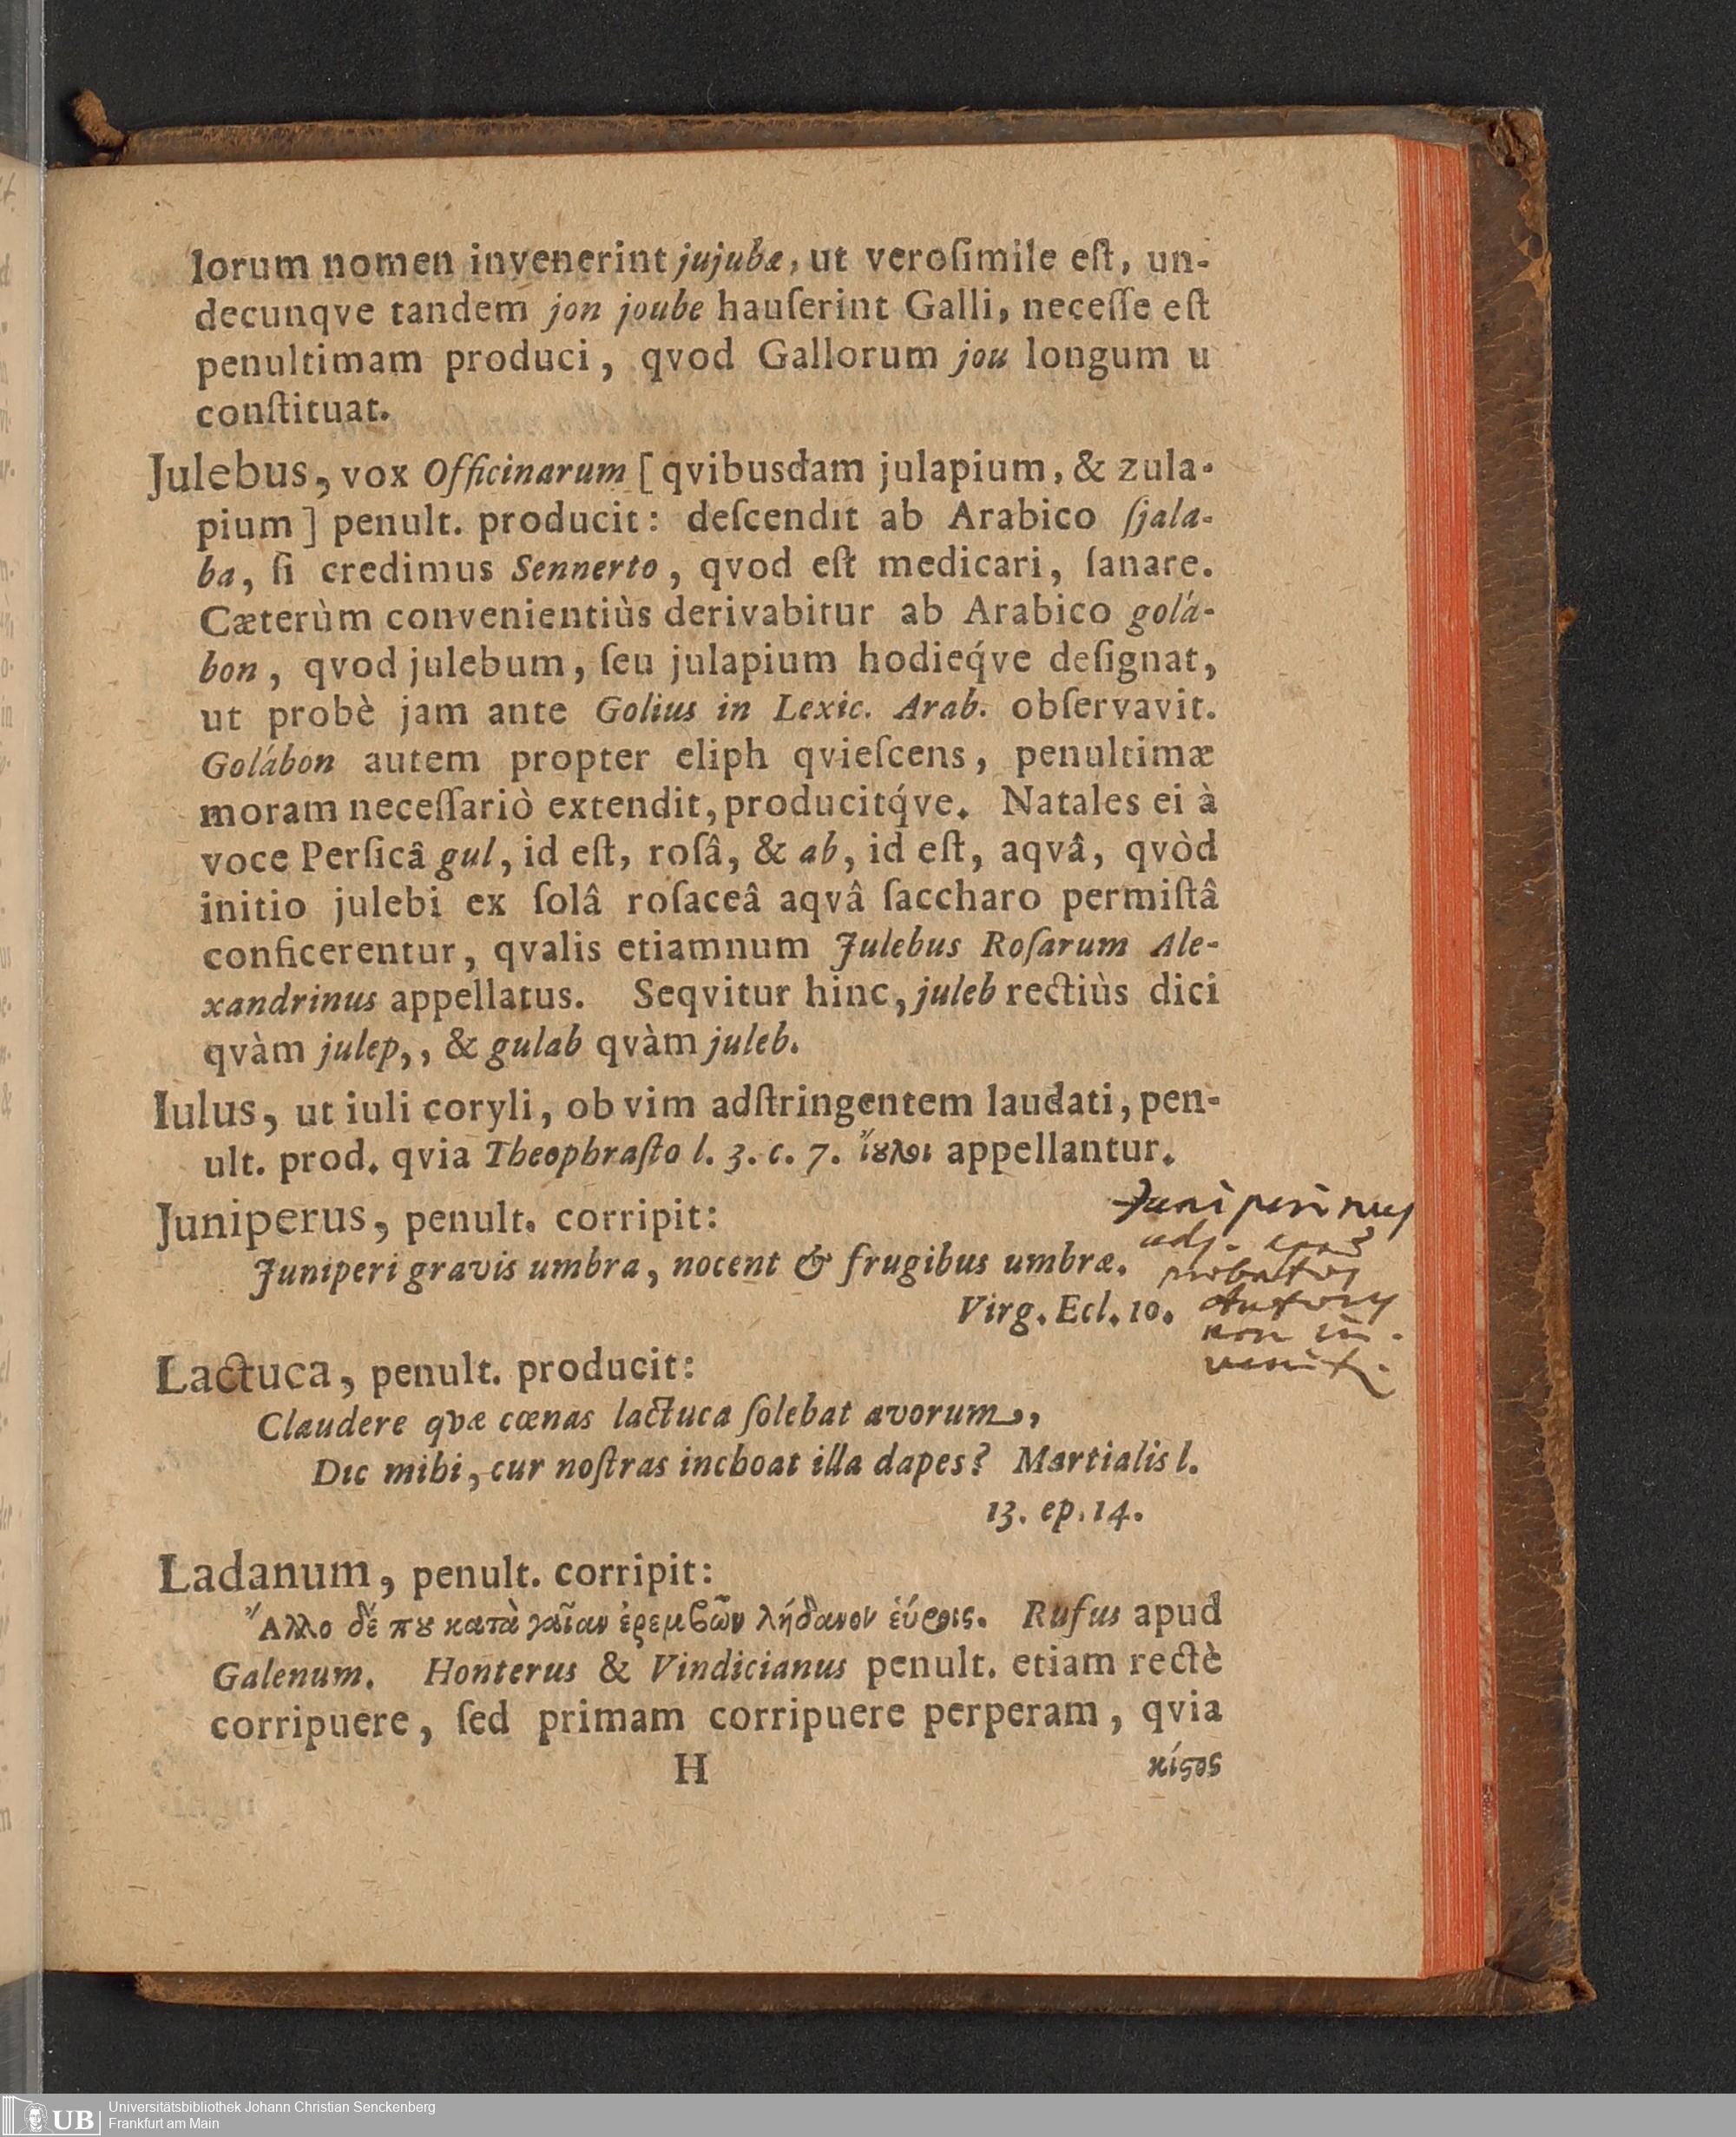 lorum nomen invenerint jujubæ, ut veroſimile eſt, un-
decunqve tandem jon joube hauſerint Galli, neceſſe eſt
penultimam produci, qvod Gallorum jou longum u
conſtituat.
Julebus, vox Officinarum [qvibusdam julapium, & zula-
pium] penult. producit: deſcendit ab Arabico ſjala-
ba, ſi credimus Sennerto, qvod eſt medicari, ſanare.
Cæterùm convenientiùs derivabitur ab Arabico golá-
bon, qvod julebum, ſeu julapium hodieq́ve deſignat,
ut probè jam ante Golius in Lexic. Arab. obſervavit.
Golábon autem propter eliph qvieſcens, penultimæ
moram neceſſariò extendit, producitq́ve. Natales ei à
voce Perſicâ gul, id eſt, roſâ, & ab, id eſt, aqvâ, qvòd
initio julebi ex ſolâ roſaceâ aqvâ ſaccharo permiſtâ
conficerentur, qvalis etiamnum Julebus Roſarum Ale-
xandrinus appellatus. Seqvitur hinc, juleb rectiùs dici
qvàm julep,, & gulab qvàm juleb.
Iulus, ut iuli coryli, ob vim adſtringentem laudati, pen-
ult. prod. qvia Theophraſto l. 3. c. 7. ἴȣλοι appellantur.
Juniperus, penult. corripit:
Juniperi gravis umbra, nocent & frugibus umbræ.
Virg. Ecl. 10.
Juniperinus
adj.
probatos
Autores
non in-
venit.
Lactuca, penult. producit:
Claudere qvæ cœnas lactuca ſolebat avorum,,
Dic mihi, cur noſtras inchoat illa dapes? Martialis l.
13. ep. 14.
Ladanum, penult. corripit:
Ἄλλο δέ πȣ κατὰ γαῖαν ἐρεμβῶν λήδανον εύροις. Rufus apud
Galenum. Honterus & Vindicianus penult. etiam rectè
corripuere, ſed primam corripuere perperam, qvia
H κίϛος
UB Universitätsbibliothek Johann Christian Senckenberg
Frankfurt am Main